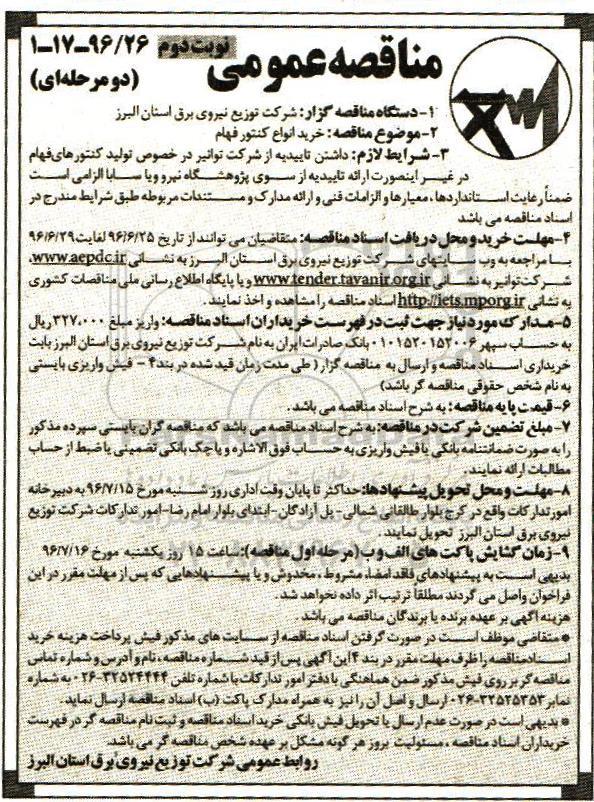 مناقصه عمومی نوبت دوم ۹۶/۲۶-۱۷-۱
(دو مرحله‌ای)
۱- دستگاه مناقصه گزار: شرکت توزیع نیروی برق استان البرز
۲- موضوع مناقصه: خرید انواع کنتور فهام
۳- شرایط لازم: داشتن تاییدیه از شرکت توانیر در خصوص تولید کنتورهای فهام
در غیر اینصورت ارائه تاییدیه از سوی پژوهشگاه نیرو و یا سابا الزامی است
ضمناً رعایت استانداردها، معیارها و الزامات فنی و ارائه مدارک و مستندات مربوطه طبق شرایط مندرج در
اسناد مناقصه می باشد
۴- مهلت خرید و محل دریافت اسناد مناقصه: متقاضیان می توانند از تاریخ ۹۶/۶/۲۵ لغایت ۹۶/۶/۲۹
با مراجعه به وب سایتهای شرکت توزیع نیروی برق استان البرز به نشانی www.aepdc.ir،
شرکت توانیر به نشانی www.tender.tavanir.org.ir و یا پایگاه اطلاع رسانی ملی مناقصات کشوری
به نشانی http://iets.mporg.ir اسناد مناقصه را مشاهده و اخذ نمایند.
۵- مدارک مورد نیاز جهت ثبت در فهرست خریداران اسناد مناقصه: واریز مبلغ ۳۲۷،۰۰۰ ریال
به حساب سپهر ۰۱۰۱۵۲۰۱۵۲۰۰۶ بانک صادرات ایران به نام شرکت توزیع نیروی برق استان البرز بابت
خریداری اسناد مناقصه و ارسال به مناقصه گزار (طی مدت زمان قید شده در بند ۴ - فیش واریزی بایستی
به نام شخص حقوقی مناقصه گر باشد)
۶- قیمت پایه مناقصه: به شرح اسناد مناقصه می باشد.
۷- مبلغ تضمین شرکت در مناقصه: به شرح اسناد مناقصه می باشد که مناقصه گران بایستی سپرده مذکور
را به صورت ضمانتنامه بانکی یا فیش واریزی به حساب فوق الاشاره و یا چک بانکی تضمینی یا ضبط از حساب
مطالبات ارائه نمایند.
۸- مهلت و محل تحویل پیشنهادها: حداکثر تا پایان وقت اداری روز شنبه مورخ ۹۶/۷/۱۵ به دبیرخانه
امور تدارکات واقع در کرج بلوار طالقانی شمالی- پل آزادگان- ابتدای بلوار امام رضا- امور تدارکات شرکت توزیع
نیروی برق استان البرز تحویل نمایند.
۹- زمان گشایش پاکت های الف و ب (مرحله اول مناقصه): ساعت ۱۵ روز یکشنبه مورخ ۹۶/۷/۱۶
بدیهی است به پیشنهادهای فاقد امضاء، مشروط، مخدوش و یا پیشنهادهایی که پس از مهلت مقرر در این
فراخوان واصل می گردند مطلقاً ترتیب اثر داده نخواهد شد.
هزینه آگهی بر عهده برنده یا برندگان مناقصه می باشد.
* متقاضی موظف است در صورت گرفتن اسناد مناقصه از سایت های مذکور فیش پرداخت هزینه خرید
اسناد مناقصه را ظرف مهلت مقرر در بند ۴ این آگهی پس از قید شماره مناقصه، نام و آدرس و شماره تماس
مناقصه گر بر روی فیش مذکور ضمن هماهنگی با دفتر امور تدارکات با شماره تلفن ۳۲۵۲۴۴۴۴-۰۲۶ به شماره
نمابر ۳۲۵۲۵۳۵۳-۰۲۶ ارسال و اصل آن را نیز به همراه مدارک پاکت (ب) اسناد مناقصه ارسال نماید.
* بدیهی است در صورت عدم ارسال یا تحویل فیش بانکی خرید اسناد مناقصه و ثبت نام مناقصه گر در فهرست
خریداران اسناد مناقصه، مسئولیت بروز هر گونه مشکل بر عهده شخص مناقصه گر می باشد.
روابط عمومی شرکت توزیع نیروی برق استان البرز